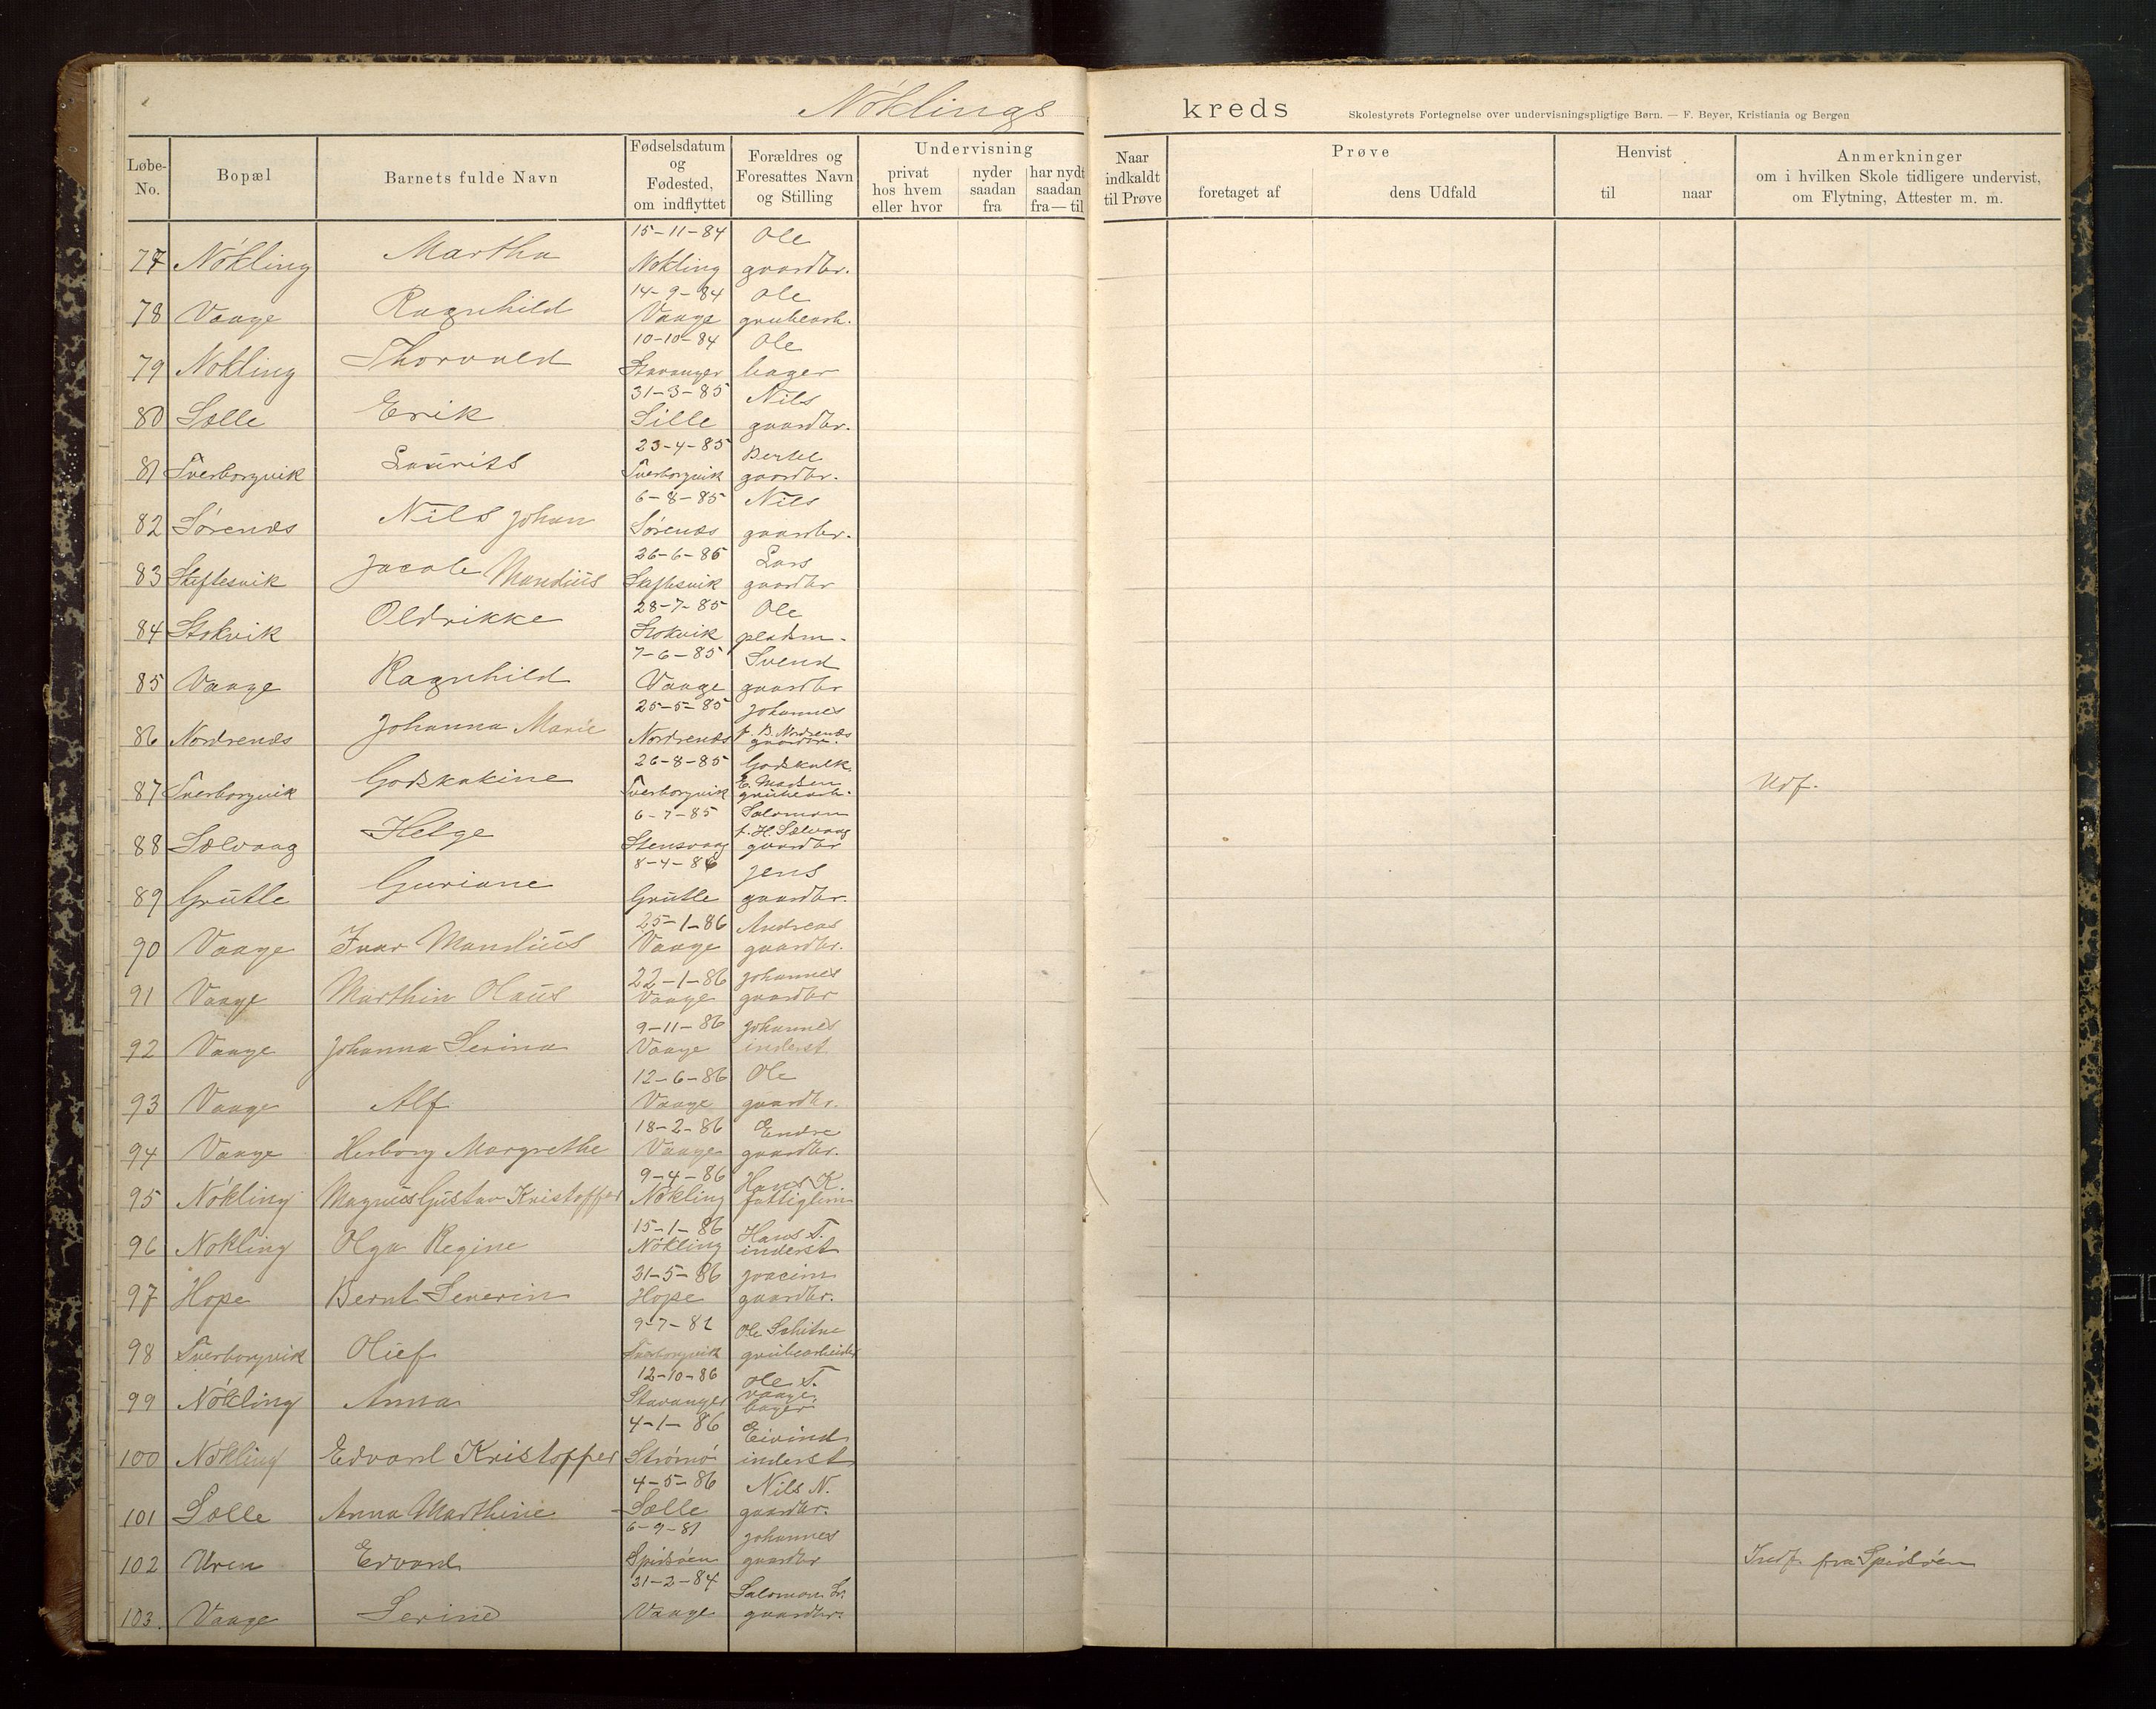 Nöklings kreds
Skolestyrets Fortegnelse over undervisningspligtige Børn. — F. Beyer, Kristiania og Bergen
Løbe-No. Bopæl Barnets fulde Navn Fødselsdatum og Fødested, om indflyttet Forældres og Foresattes Navn og Stilling Undervisning privat hos hvem eller hvor nyder saadan fra har nydt saadan fra—til Naar indkaldt til Prøve Prøve foretaget af dens Udfald Henvist til naar Anmerkninger om i hvilken Skole tidligere undervist, om Flytning, Attester m. m.
15-11-84 Ole
77 Nökling Martha Nökling gaardbr.
14-9-84 Ole
78 Vaage Ragnhild Vaage grubearb.
10-10-84 Ole
79 Nökling Thorvald Stavanger bager
31-3-85 Nils
80 Sælle Erik Sille gaardbr.
23-4-85 Bertel
81 Tverborgvik Laurits Tverborgvik gaardbr.
6-8-85 Nils
82 Sørenæs Nils Johan Sørenæs gaardbr.
26-6-85 Lars
83 Skeftesvik Jacob Mandius Skeftesvik gaardbr
28-7-85 Ole
84 Stokvik Oldrikke Stokvik pladsm.
7-6-85 Svend
85 Vaage Ragnhild Vaage gaardbr
25-5-85 Johannes
86 Nordrenæs Johanna Marie Nordrenæs f. B. Nordrenæs gaardbr.
26-8-85 Godskalk
87 Tverborgvik Godskakine Tverborgvik E. Madsen grubearb. Udf.
6-7-85 Salomon
88 Sælvaag Helge Stensvaag f. H. Sælvaag gaardbr
8-4-86 Jens
89 Grutle Guriane Grutle gaardbr.
25-1-86 Andreas
90 Vaage Ivar Mandius Vaage gaardbr.
22-1-86 Johannes
91 Vaage Marthin Olaus Vaage gaardbr
9-11-86 Johannes
92 Vaage Johanna Serina Vaage inderst
12-6-86 Ole
93 Vaage Alf Vaage gaardbr.
18-2-86 Endre
94 Vaage Herborg Margrethe Vaage gaardbr.
9-4-86 Hans K.
95 Nökling Magnus Gustav Kristoffer Nökling fattiglem
15-1-86 Hans T.
96 Nökling Olga Regine Nökling inderst
31-5-86 Joacim
97 Hope Bernt Severin Hope gaardbr.
9-7-82 Ole
98 Tverborgvik Oluf Tverborgvik grubearbeider
12-10-86 Ole T.
99 Nökling Anna Stavanger Vaage bager
4-1-86 Eivind
100 Nökling Edvard Kristoffer Strömö inderst
4-5-86 Nils N.
101 Sælle Anna Marthine Sælle gaardbr.
6-9-81 Johannes
102 Uren Edvard Spidsöen gaardbr Indf. fra Spidsöen
21-2-84 Salomon
103. Vaage Serine Vaage gaardbr.